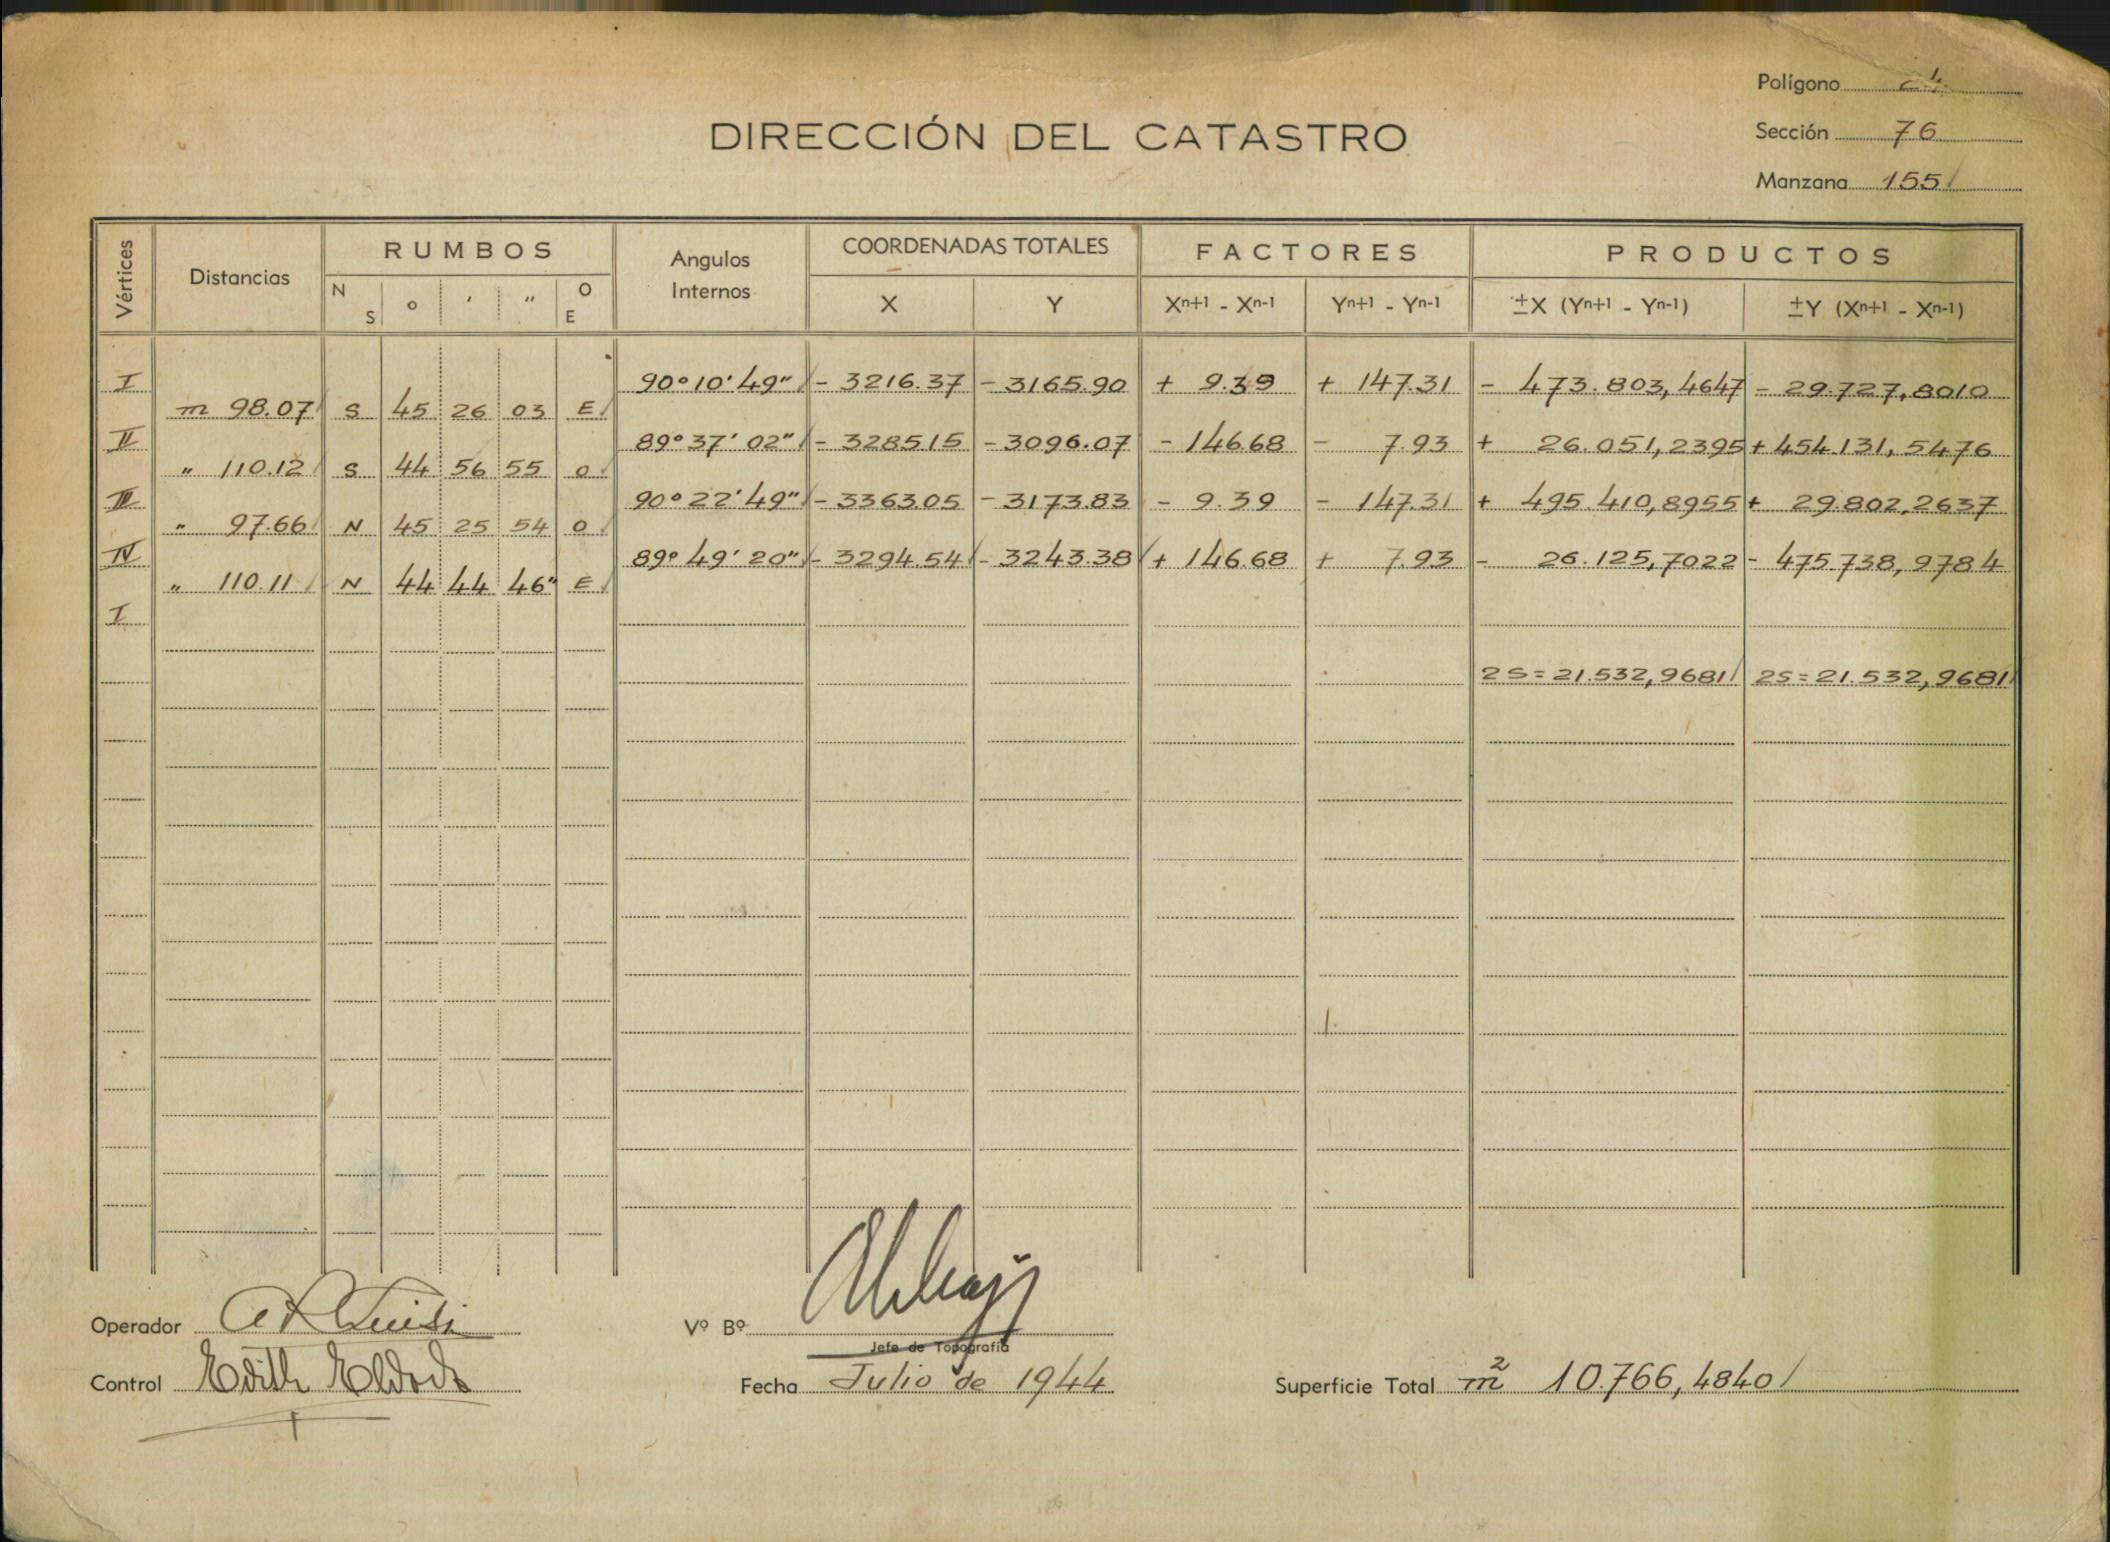 Polígono 24
DIRECCIÓN DEL CATASTRO
Sección 76
Manzana 155
Vértices Distancias RUMBOS Angulos Internos COORDENADAS TOTALES FACTORES PRODUCTOS
N S ° ′ ″ O E X Y Xn+1 - Xn-1 Yn+1 - Yn-1 ±X (Yn+1 - Yn-1) ±Y (Xn+1 - Xn-1)
I 90° 10' 49" - 3216.37 - 3165.90 + 9.39 + 147.31 - 473.803,4647 - 29.727,8010
m 98.07 S 45 26 03 E
II 89° 37' 02" - 3285.15 - 3096.07 - 146.68 - 7.93 + 26.051,2395 + 454.131,5476
" 110.12 S 44 56 55 O
III 90° 22' 49" - 3363.05 - 3173.83 - 9.39 - 147.31 + 495.410,8955 + 29.802,2637
" 97.66 N 45 25 54 O
IV 89° 49' 20" - 3294.54 - 3243.38 + 146.68 + 7.93 - 26.125,7022 - 475.738,9784
" 110.11 N 44 44 46" E
I
2S = 21.532,9681 2S = 21.532,9681
Operador
Vº Bº
Jefe de Topografía
Control Edith
Fecha Julio de 1944
Superficie Total m2 10.766,4840